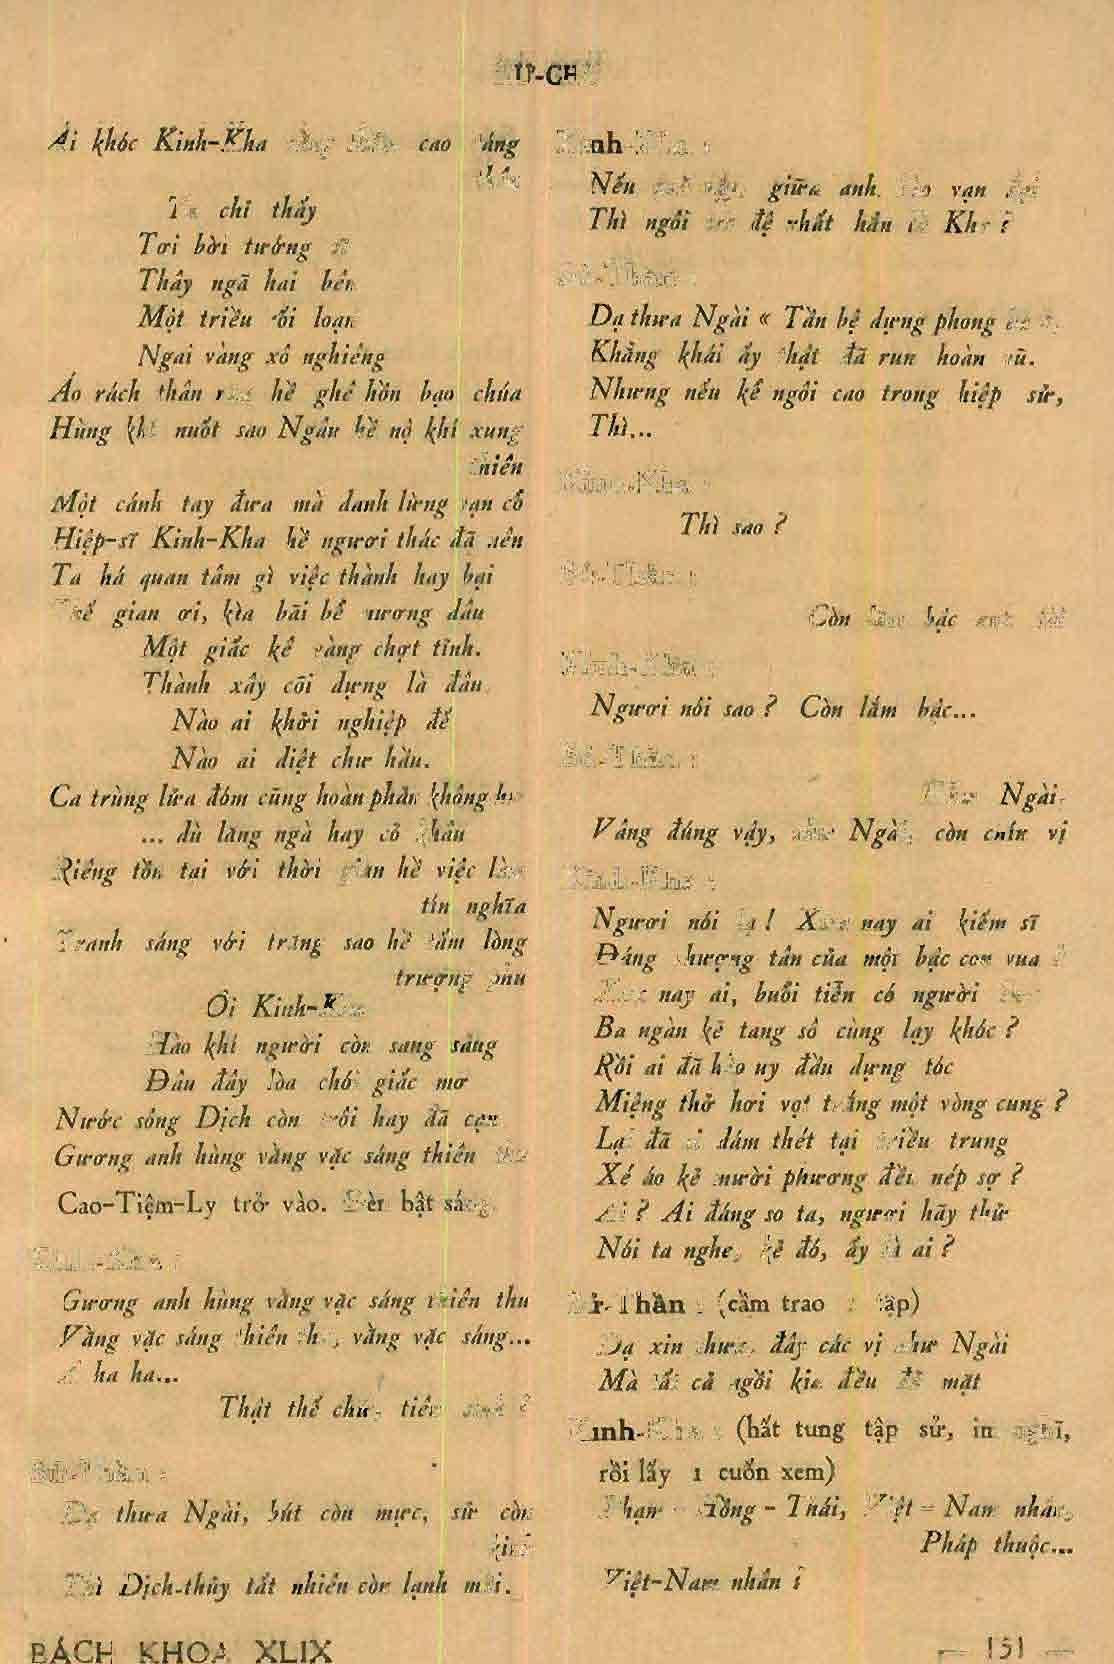 Ai khóc Kinh-Kha cao
chỉ thấy
Tơi bời tướng
Thây ngã hai bên
Một triều rối loạn
Ngai vàng xô nghiêng
Áo rách thân hề ghê hồn bạo chúa
Hùng khí nuốt sao Ngâu hề nộ khí xung
thiên
Một cánh tay đưa mà danh lừng vạn cổ
Hiệp-sĩ Kinh-Kha hề ngươi thác đã nên
Ta há quan tâm gì việc thành hay bại
Thế gian ơi, kìa bãi bể nương dâu
Một giấc kê vàng chợt tỉnh.
Thành xây cõi dựng là đâu
Nào ai khởi nghiệp đế
Nào ai diệt chư hầu.
Ca trùng lửa đóm cũng hoàn phản không
... dù lăng ngà hay cỏ khâu
Riêng tồn tại với thời gian hề việc làm
tín nghĩa
Tranh sáng với trăng sao hề tấm lòng
trượng phu
Ôi Kinh-Kha
Hào khí người còn sang sảng
Đâu đây lòa chói giấc mơ
Nước sông Dịch còn trôi hay đã cạn
Gương anh hùng vằng vặc sáng thiên thu
Cao-Tiệm-Ly trở vào. Đèn bật sáng.
Kinh-Kha :
Gương anh hùng vằng vặc sáng thiên thu
Vằng vặc sáng thiên thu, vằng vặc sáng...
ha ha...
Thật thế chứ, tiên sinh ?
Sứ-Thần :
Dạ thưa Ngài, bút còn mực, sử còn
kinh
Thì Dịch-thủy tất nhiên còn lạnh mãi.
Kinh-Kha :
Nếu giữa anh vạn đại
Thì ngôi đệ nhất hẳn là Kha ?
Sứ-Thần :
Dạ thưa Ngài « Tần bệ dựng phong
Khảng khái ấy thật đã run hoàn vũ.
Nhưng nếu kể ngôi cao trong hiệp sử,
Thì...
Kinh-Kha :
Thì sao ?
Sứ-Thần :
Còn lắm bậc
Kinh-Kha :
Ngươi nói sao ? Còn lắm bậc...
Sứ-Thần :
Ngài.
Vâng đúng vậy, Ngài, còn chín vị
Kinh-Kha :
Ngươi nói lạ ! Xưa nay ai kiếm sĩ
Đáng thượng tân của một bậc con vua ?
Xưa nay ai, buổi tiễn có người
Ba ngàn kẻ tang sô cùng lạy khóc ?
Rồi ai đã hào uy đầu dựng tóc
Miệng thở hơi vọt trắng một vòng cung ?
Lại đã ai dám thét tại triều trung
Xé áo kẻ mười phương đều nép sợ ?
Ai ? Ai đáng so ta, ngươi hãy thử
Nói ta nghe, kẻ đó, ấy là ai ?
Sứ-Thần : (cầm trao tập)
Dạ xin thưa, đây các vị như Ngài
Mà tất cả ngồi kia đều đủ mặt
Kinh-Kha : (hất tung tập sử, im nghĩ,
rồi lấy 1 cuốn xem)
Phạm - Hồng - Thái, Việt - Nam nhân,
Pháp thuộc...
Việt-Nam nhân
BÁCH KHOA XLIX
— 151 —